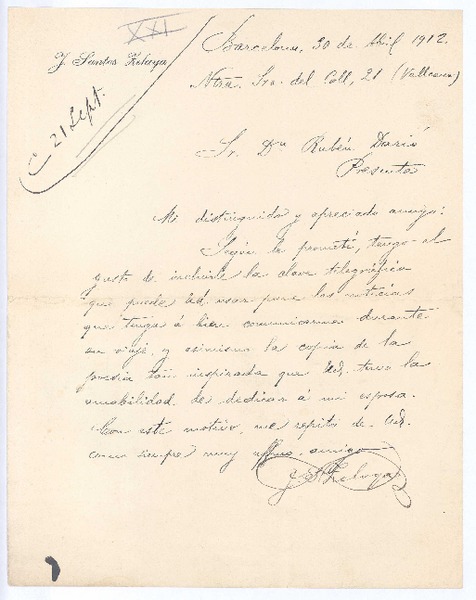 XXI
J. Santos Zelaya
C 21 Sept.
Barcelona, 30 de Abril 1912.
Ntra. Sra. del Coll, 21 (Vallcarca)
Sr. Dn Rubén Darío
Presente
Mi distinguido y apreciado amigo:
Según le prometí, tengo el
gusto de incluirle la clave telegráfica
que puede Ud. usar para las noticias
que tenga á bien comunicarme durante
su viaje, y asimismo la copia de la
poesía tan inspirada que Ud. tuvo la
amabilidad de dedicar á mi esposa.
Con este motivo, me repito de Ud.
como siempre muy affmo. amigo
J. S. Zelaya